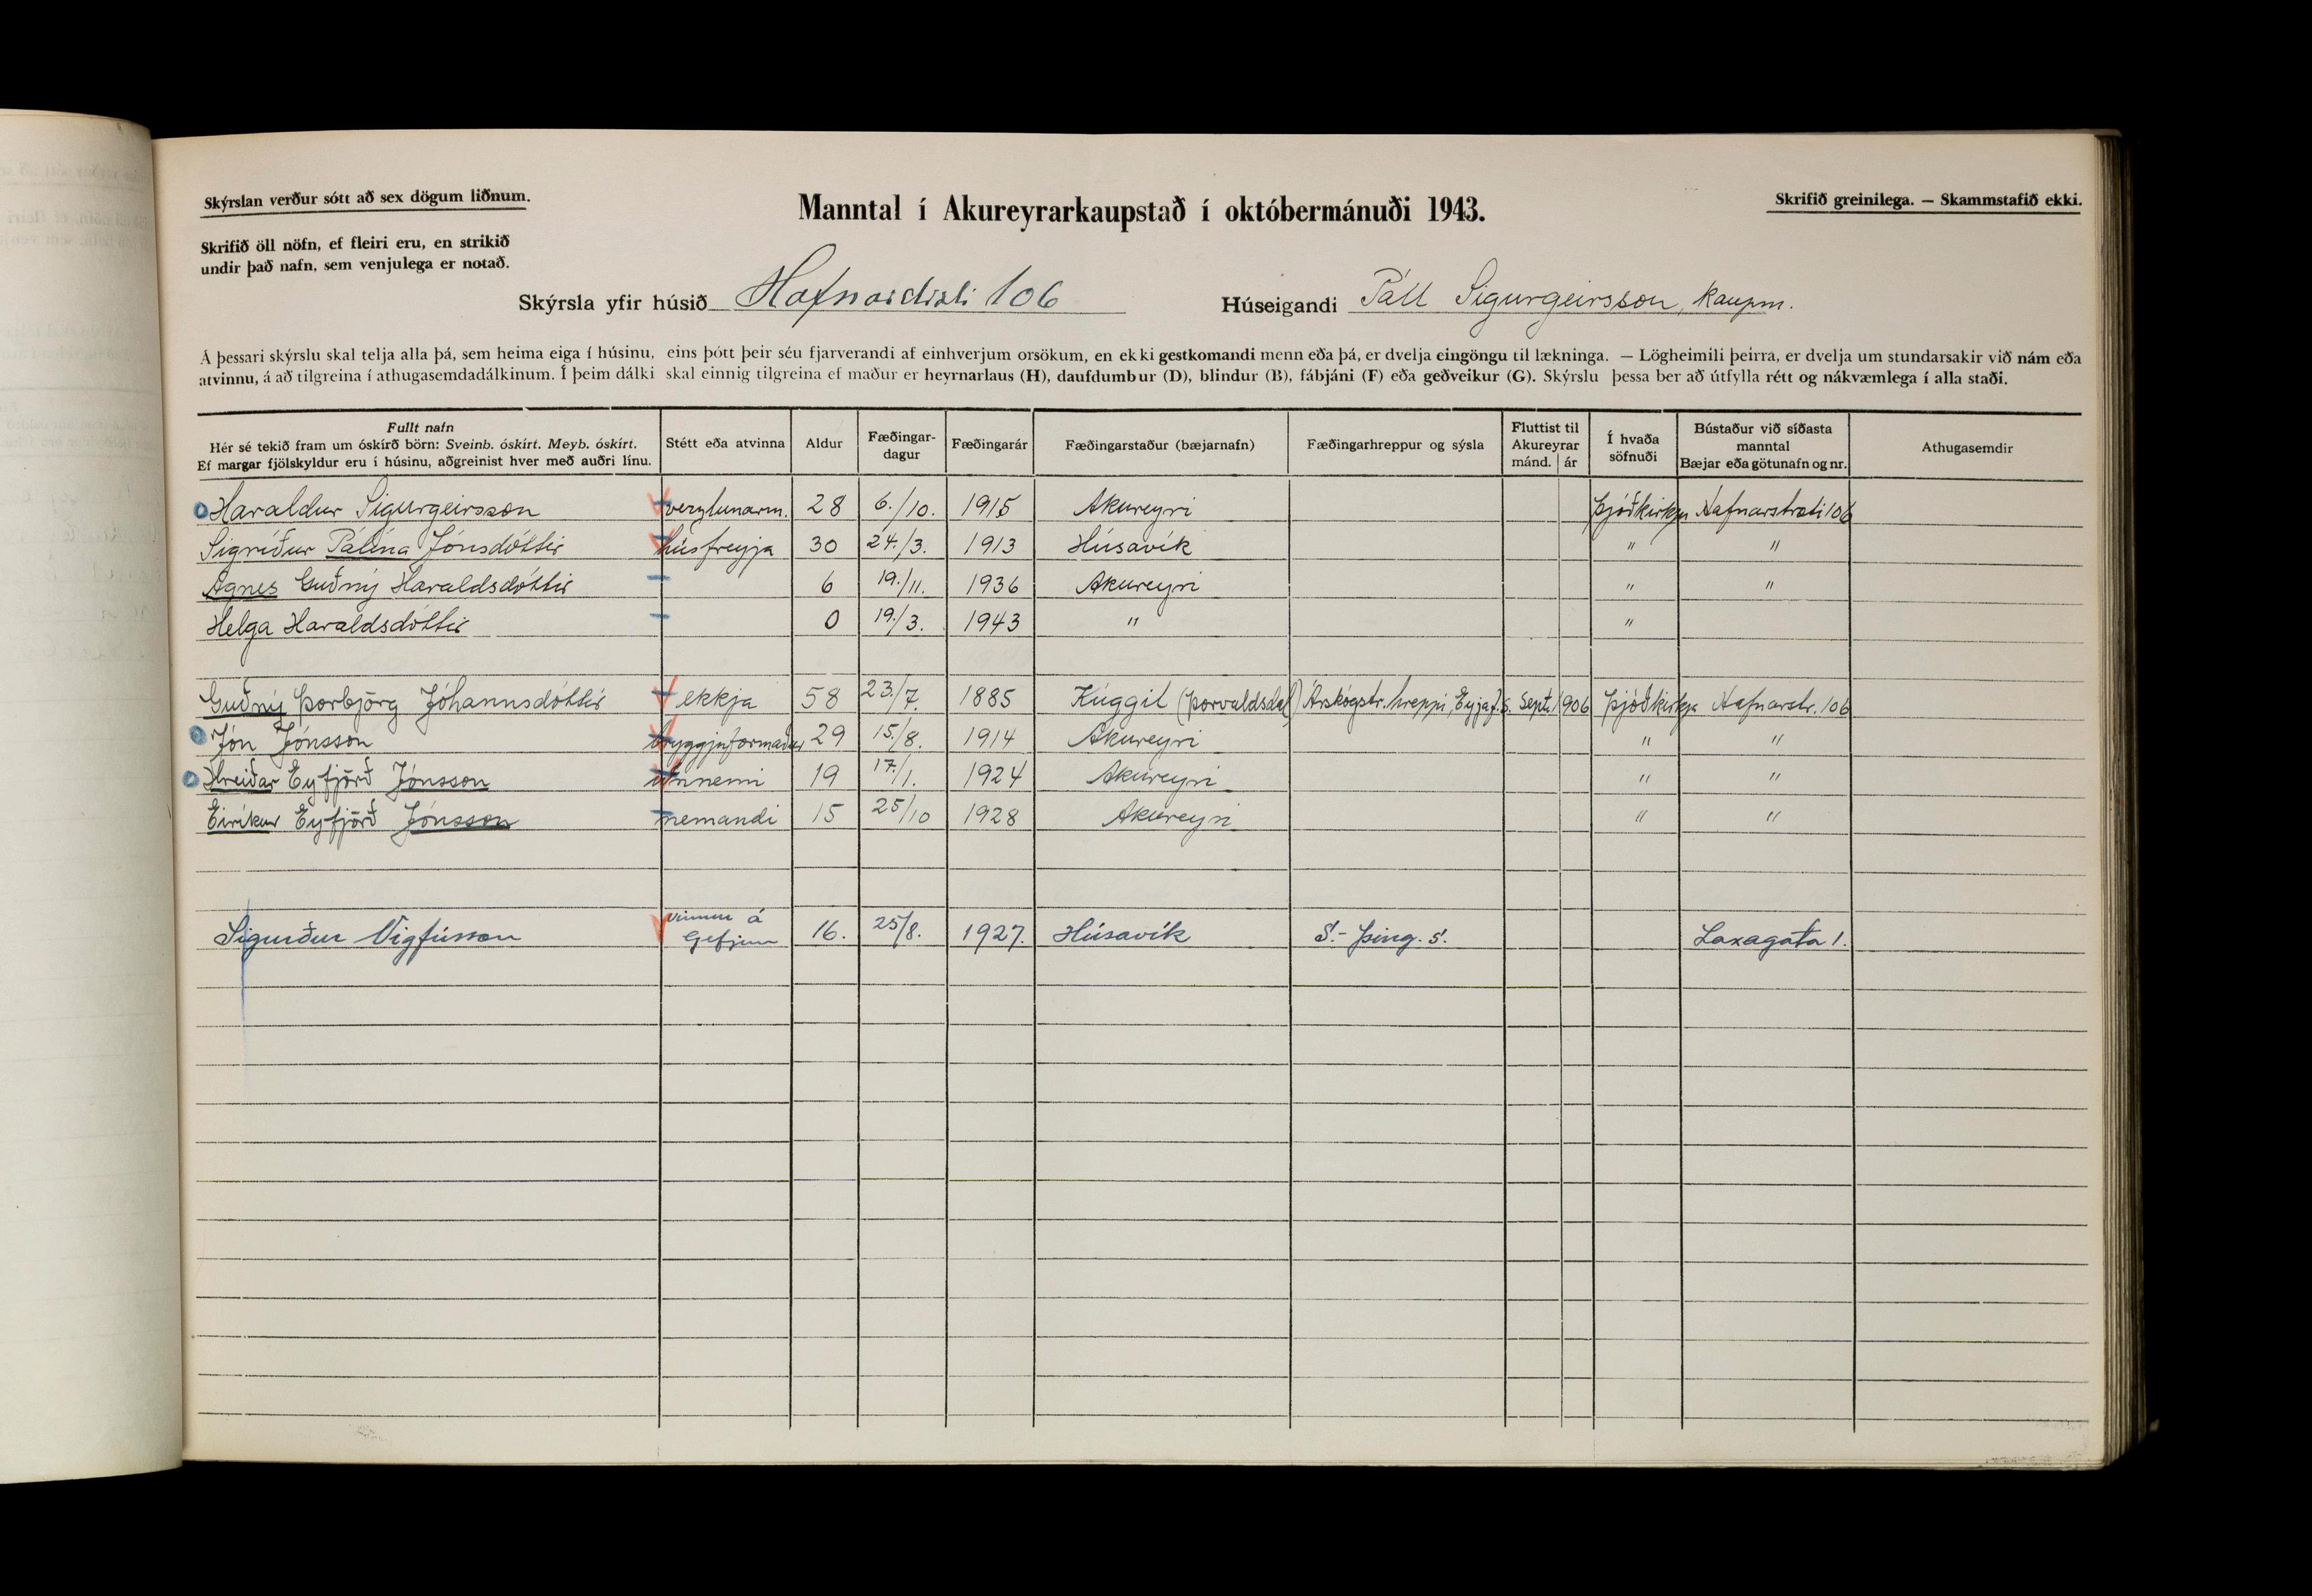 Skýrslan verður sótt að sex dögum liðnum.
Manntal í Akureyrarkaupstað í októbermánuði 1943.
Skrifið greinilega. — Skammstafið ekki.
Skrifið öll nöfn, ef fleiri eru, en strikið
undir það nafn, sem venjulega er notað.
Skýrsla yfir húsið Hafnarstræti 106 Húseigandi Páll Sigurgeirsson, kaupm.
Á þessari skýrslu skal telja alla þá, sem heima eiga í húsinu, eins þótt þeir séu fjarverandi af einhverjum orsökum, en ekki gestkomandi menn eða þá, er dvelja eingöngu til lækninga. — Lögheimili þeirra, er dvelja um stundarsakir við nám eða
atvinnu, á að tilgreina í athugasemdadálkinum. Í þeim dálki skal einnig tilgreina ef maður er heyrnarlaus (H), daufdumbur (D), blindur (B), fábjáni (F) eða geðveikur (G). Skýrslu þessa ber að útfylla rétt og nákvæmlega í alla staði.
Fullt nafn
Hér sé tekið fram um óskírð börn: Sveinb. óskírt. Meyb. óskírt.
Ef margar fjölskyldur eru í húsinu, aðgreinist hver með auðri línu.
Stétt eða atvinna
Aldur
Fæðingar-
dagur
Fæðingarár
Fæðingarstaður (bæjarnafn)
Fæðingarhreppur og sýsla
Fluttist til
Akureyrar
mánd. ár
Í hvaða
söfnuði
Bústaður við síðasta
manntal
Bæjar eða götunafn og nr.
Athugasemdir
Haraldur Sigurgeirsson verzlunarm. 28 6./10. 1915 Akureyri Þjóðkirkju Hafnarstræti 106
Sigríður Pálína Jónsdóttir húsfreyja 30 24./3. 1913 Húsavík " "
Agnes Guðný Haraldsdóttir 6 19./11. 1936 Akureyri " "
Helga Haraldsdóttir 0 19./3. 1943 " "
Guðný Þorbjörg Jóhannsdóttir ekkja 58 23./7. 1885 Kúggil (Þorvaldsdal) Árskógstr. hreppi, Eyjaf.s. Sept. 1906 Þjóðkirkja Hafnarstr. 106
Jón Jónsson bryggjuformaður 29 15./8. 1914 Akureyri " "
Hreiðar Eyfjörð Jónsson iðnnemi 19 17./1. 1924 Akureyri " "
Eiríkur Eyfjörð Jónsson nemandi 15 25/10 1928 Akureyri " "
Sigurður Vigfússon vinnur á Gefjun 16. 25/8. 1927. Húsavík S.-Þing. s. Laxagata 1.